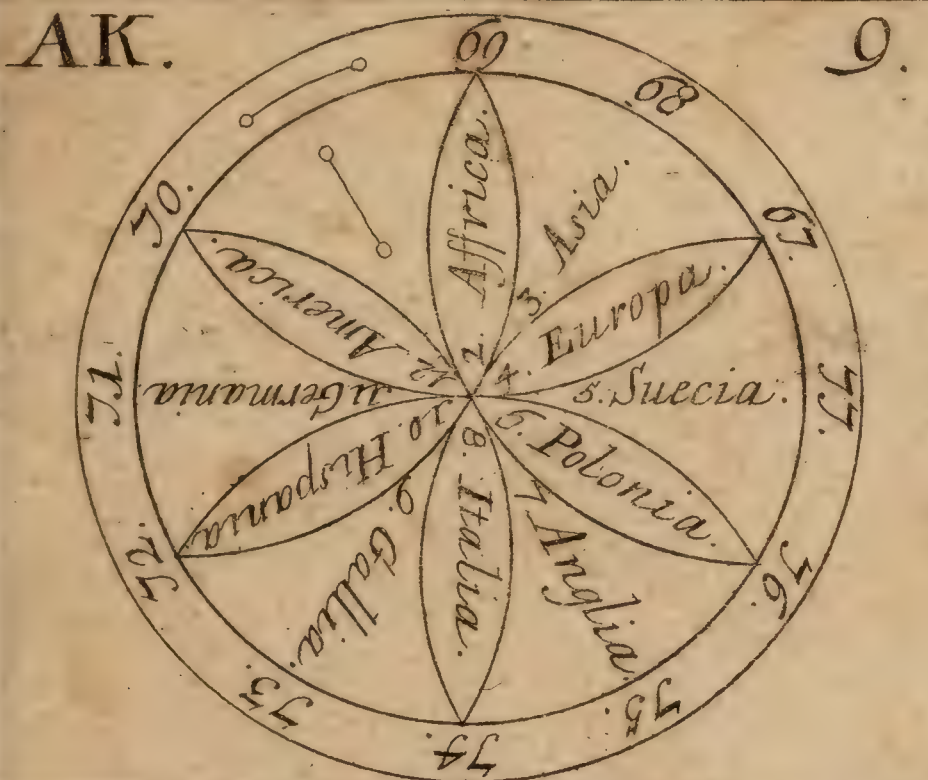 AK.
9.
69
68.
67.
77.
76.
75.
74.
73.
72.
71.
70.
2. Affrica.
3. Asia.
4. Europa.
5. Suecia.
6. Polonia.
7 Anglia.
8. Italia.
9. Gallia.
10. Hispania
11 Germania
12. America.